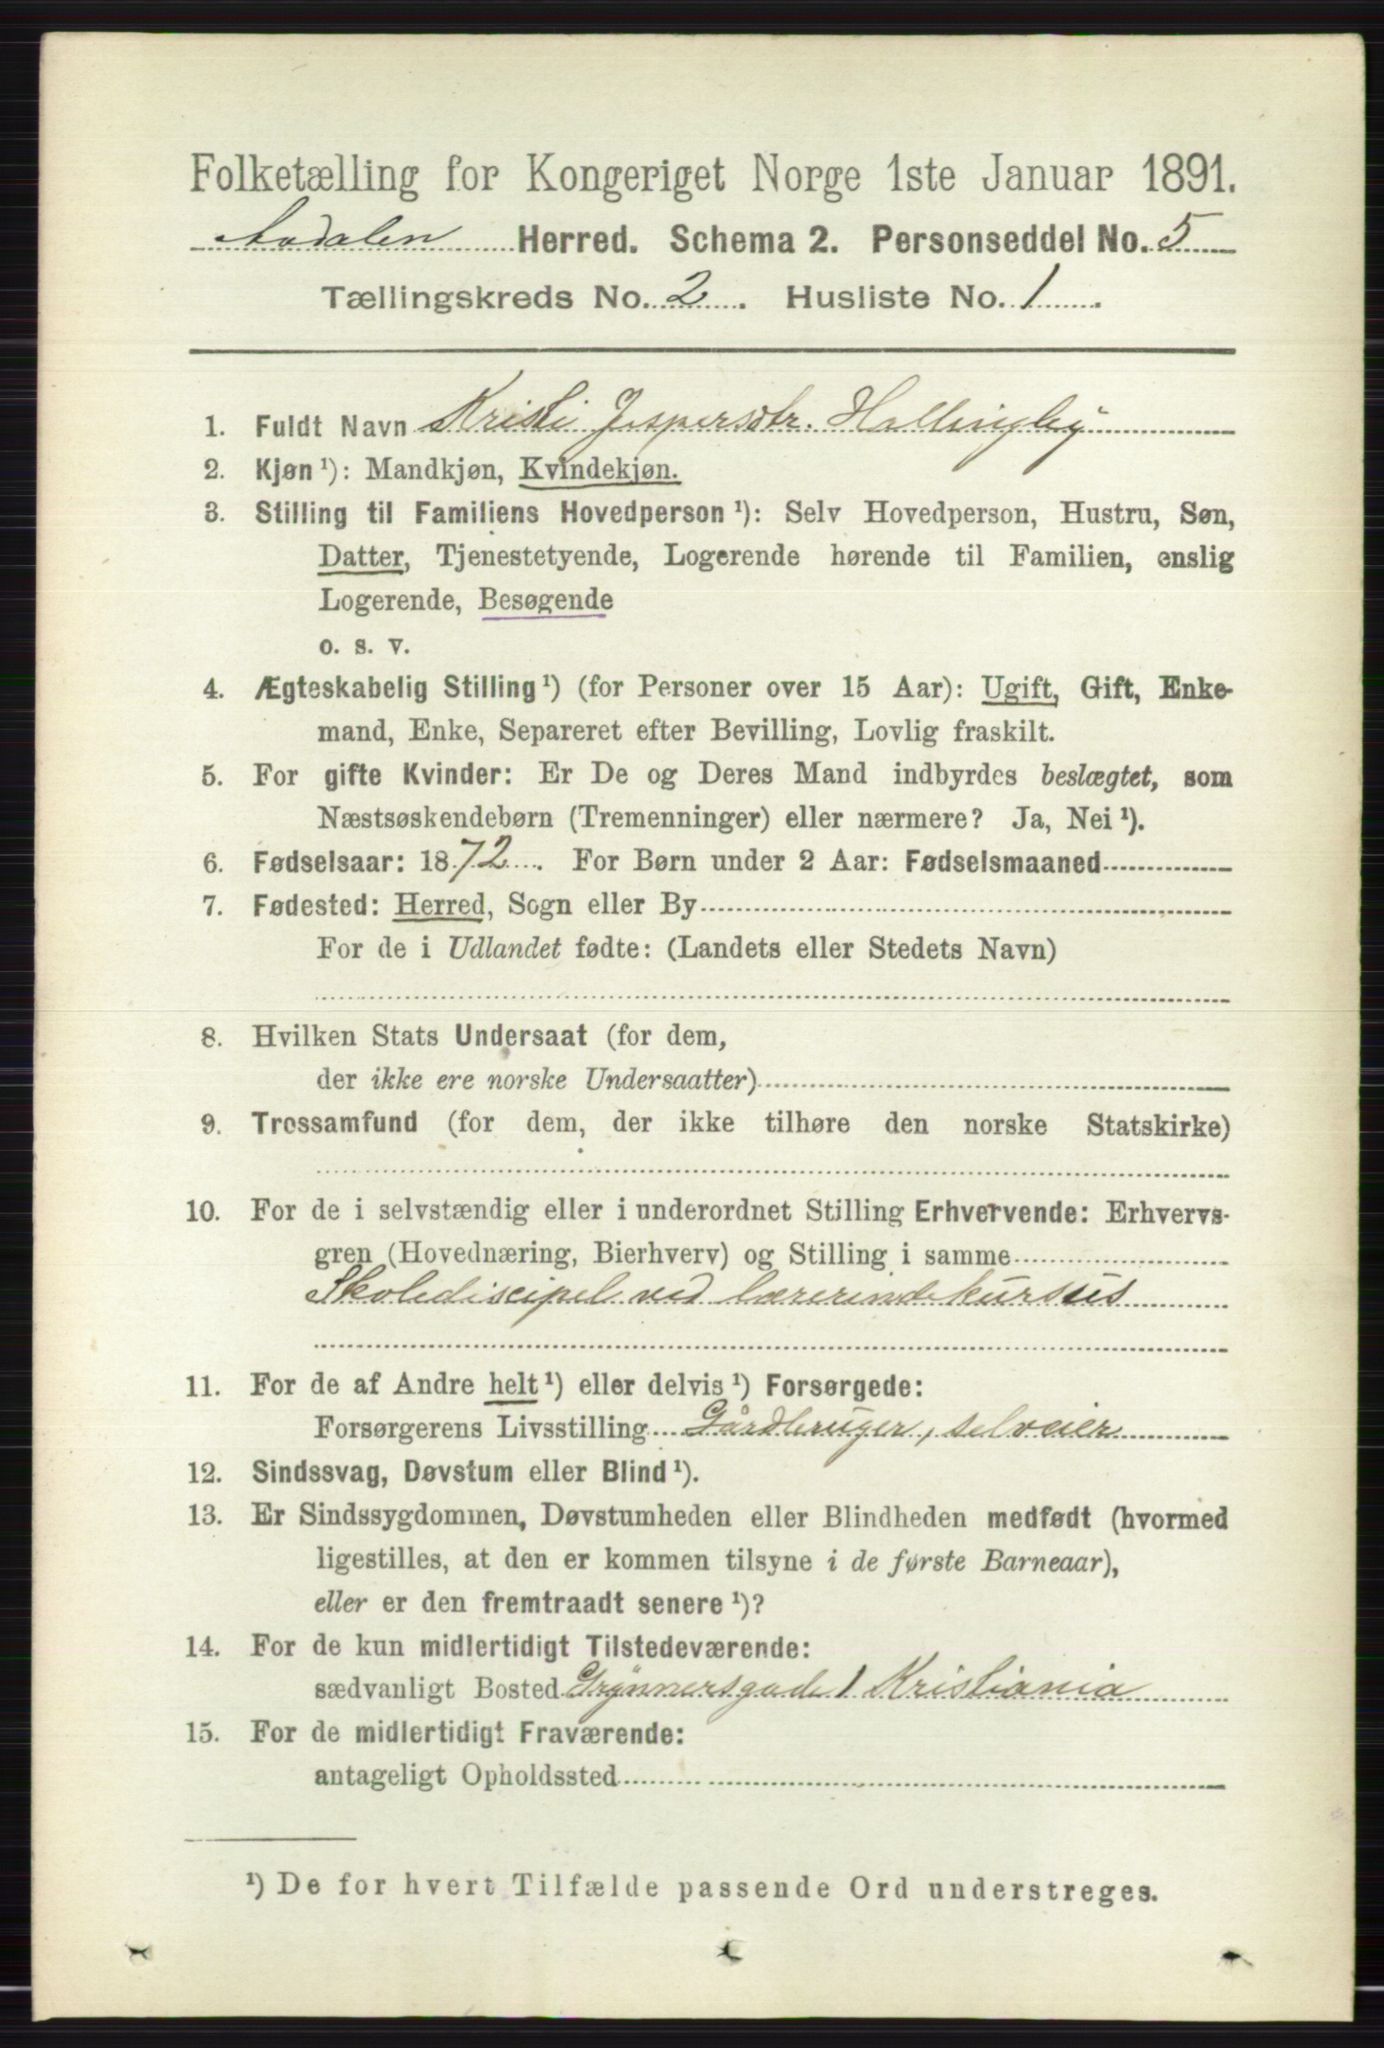 Folketælling for Kongeriget Norge 1ste Januar 1891.
Aadalen Herred. Schema 2. Personseddel No. 5
Tællingskreds No. 2. Husliste No. 1.
1. Fuldt Navn Kristi Jespersdtr. Hallingby
2. Kjøn¹): Mandkjøn, Kvindekjøn.
3. Stilling til Familiens Hovedperson¹): Selv Hovedperson, Hustru, Søn,
Datter, Tjenestetyende, Logerende hørende til Familien, enslig
Logerende, Besøgende
o. s. v.
4. Ægteskabelig Stilling¹) (for Personer over 15 Aar): Ugift, Gift, Enke-
mand, Enke, Separeret efter Bevilling, Lovlig fraskilt.
5. For gifte Kvinder: Er De og Deres Mand indbyrdes beslægtet, som
Næstsøskendebørn (Tremenninger) eller nærmere? Ja, Nei¹).
6. Fødselsaar: 1872. For Børn under 2 Aar: Fødselsmaaned
7. Fødested: Herred, Sogn eller By
For de i Udlandet fødte: (Landets eller Stedets Navn)
8. Hvilken Stats Undersaat (for dem,
der ikke ere norske Undersaatter)
9. Trossamfund (for dem, der ikke tilhøre den norske Statskirke)
10. For de i selvstændig eller i underordnet Stilling Erhvervende: Erhvervs-
gren (Hovednæring, Bierhverv) og Stilling i samme
Skolediscipel ved lærerindekursus
11. For de af Andre helt¹) eller delvis¹) Forsørgede:
Forsørgerens Livsstilling Gårdbruger, selveier
12. Sindssvag, Døvstum eller Blind¹).
13. Er Sindssygdommen, Døvstumheden eller Blindheden medfødt (hvormed
ligestilles, at den er kommen tilsyne i de første Barneaar),
eller er den fremtraadt senere¹)?
14. For de kun midlertidigt Tilstedeværende:
sædvanligt Bosted Grynnersgade 1 Kristiania
15. For de midlertidigt Fraværende:
antageligt Opholdssted
¹) De for hvert Tilfælde passende Ord understreges.